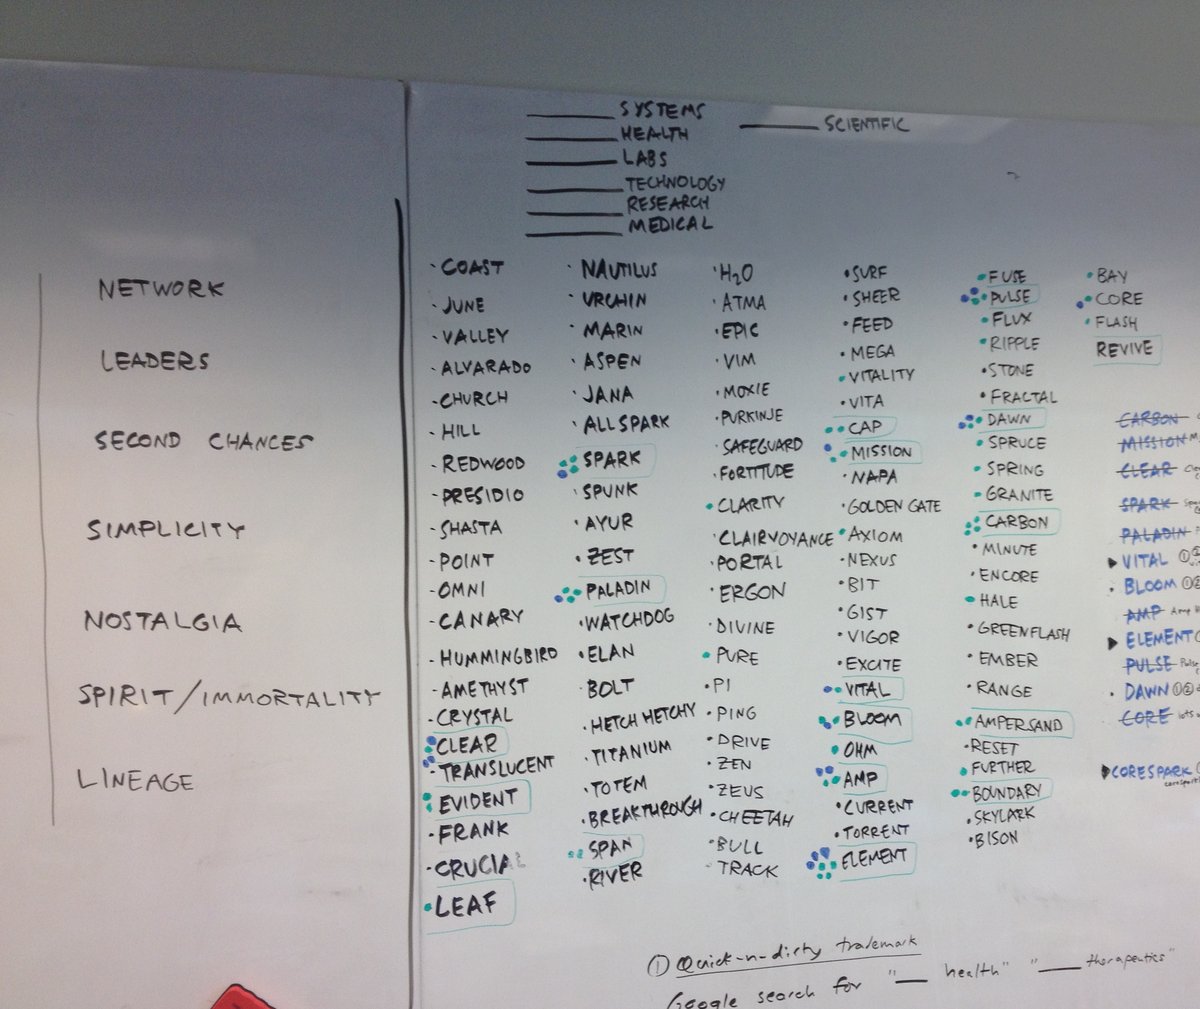 NETWORK
LEADERS
SECOND CHANCES
SIMPLICITY
NOSTALGIA
SPIRIT/IMMORTALITY
LINEAGE
SYSTEMS
HEALTH
LABS
TECHNOLOGY
RESEARCH
MEDICAL
SCIENTIFIC
COAST
JUNE
VALLEY
ALVARADO
CHURCH
HILL
REDWOOD
PRESIDIO
SHASTA
POINT
OMNI
CANARY
HUMMINGBIRD
AMETHYST
CRYSTAL
CLEAR
TRANSLUCENT
EVIDENT
FRANK
CRUCIAL
LEAF
NAUTILUS
URCHIN
MARIN
ASPEN
JANA
ALLSPARK
SPARK
SPUNK
AYUR
ZEST
PALADIN
WATCHDOG
ELAN
BOLT
HETCH HETCHY
TITANIUM
TOTEM
BREAKTHROUGH
SPAN
RIVER
H2O
ATMA
EPIC
VIM
MOXIE
PURKINJE
SAFEGUARD
FORTITUDE
CLARITY
CLAIRVOYANCE
PORTAL
ERGON
DIVINE
PURE
PI
PING
DRIVE
ZEN
ZEUS
CHEETAH
BULL
TRACK
SURF
SHEER
FEED
MEGA
VITALITY
VITA
CAP
MISSION
NAPA
GOLDEN GATE
AXIOM
NEXUS
BIT
GIST
VIGOR
EXCITE
VITAL
BLOOM
OHM
AMP
CURRENT
TORRENT
ELEMENT
FUSE
PULSE
FLUX
RIPPLE
STONE
FRACTAL
DAWN
SPRUCE
SPRING
GRANITE
CARBON
MINUTE
ENCORE
HALE
GREENFLASH
EMBER
RANGE
AMPERSAND
RESET
FURTHER
BOUNDARY
SKYLARK
BISON
BAY
CORE
FLASH
REVIVE
CARBON
MISSION
CLEAR
SPARK
PALADIN
VITAL ①
BLOOM ①
AMP Amp
ELEMENT
PULSE Pulse
DAWN ①②
CORE lots
CORESPARK
① Quick-n-dirty trademark
Google search for "__ health" "___ therapeutics"